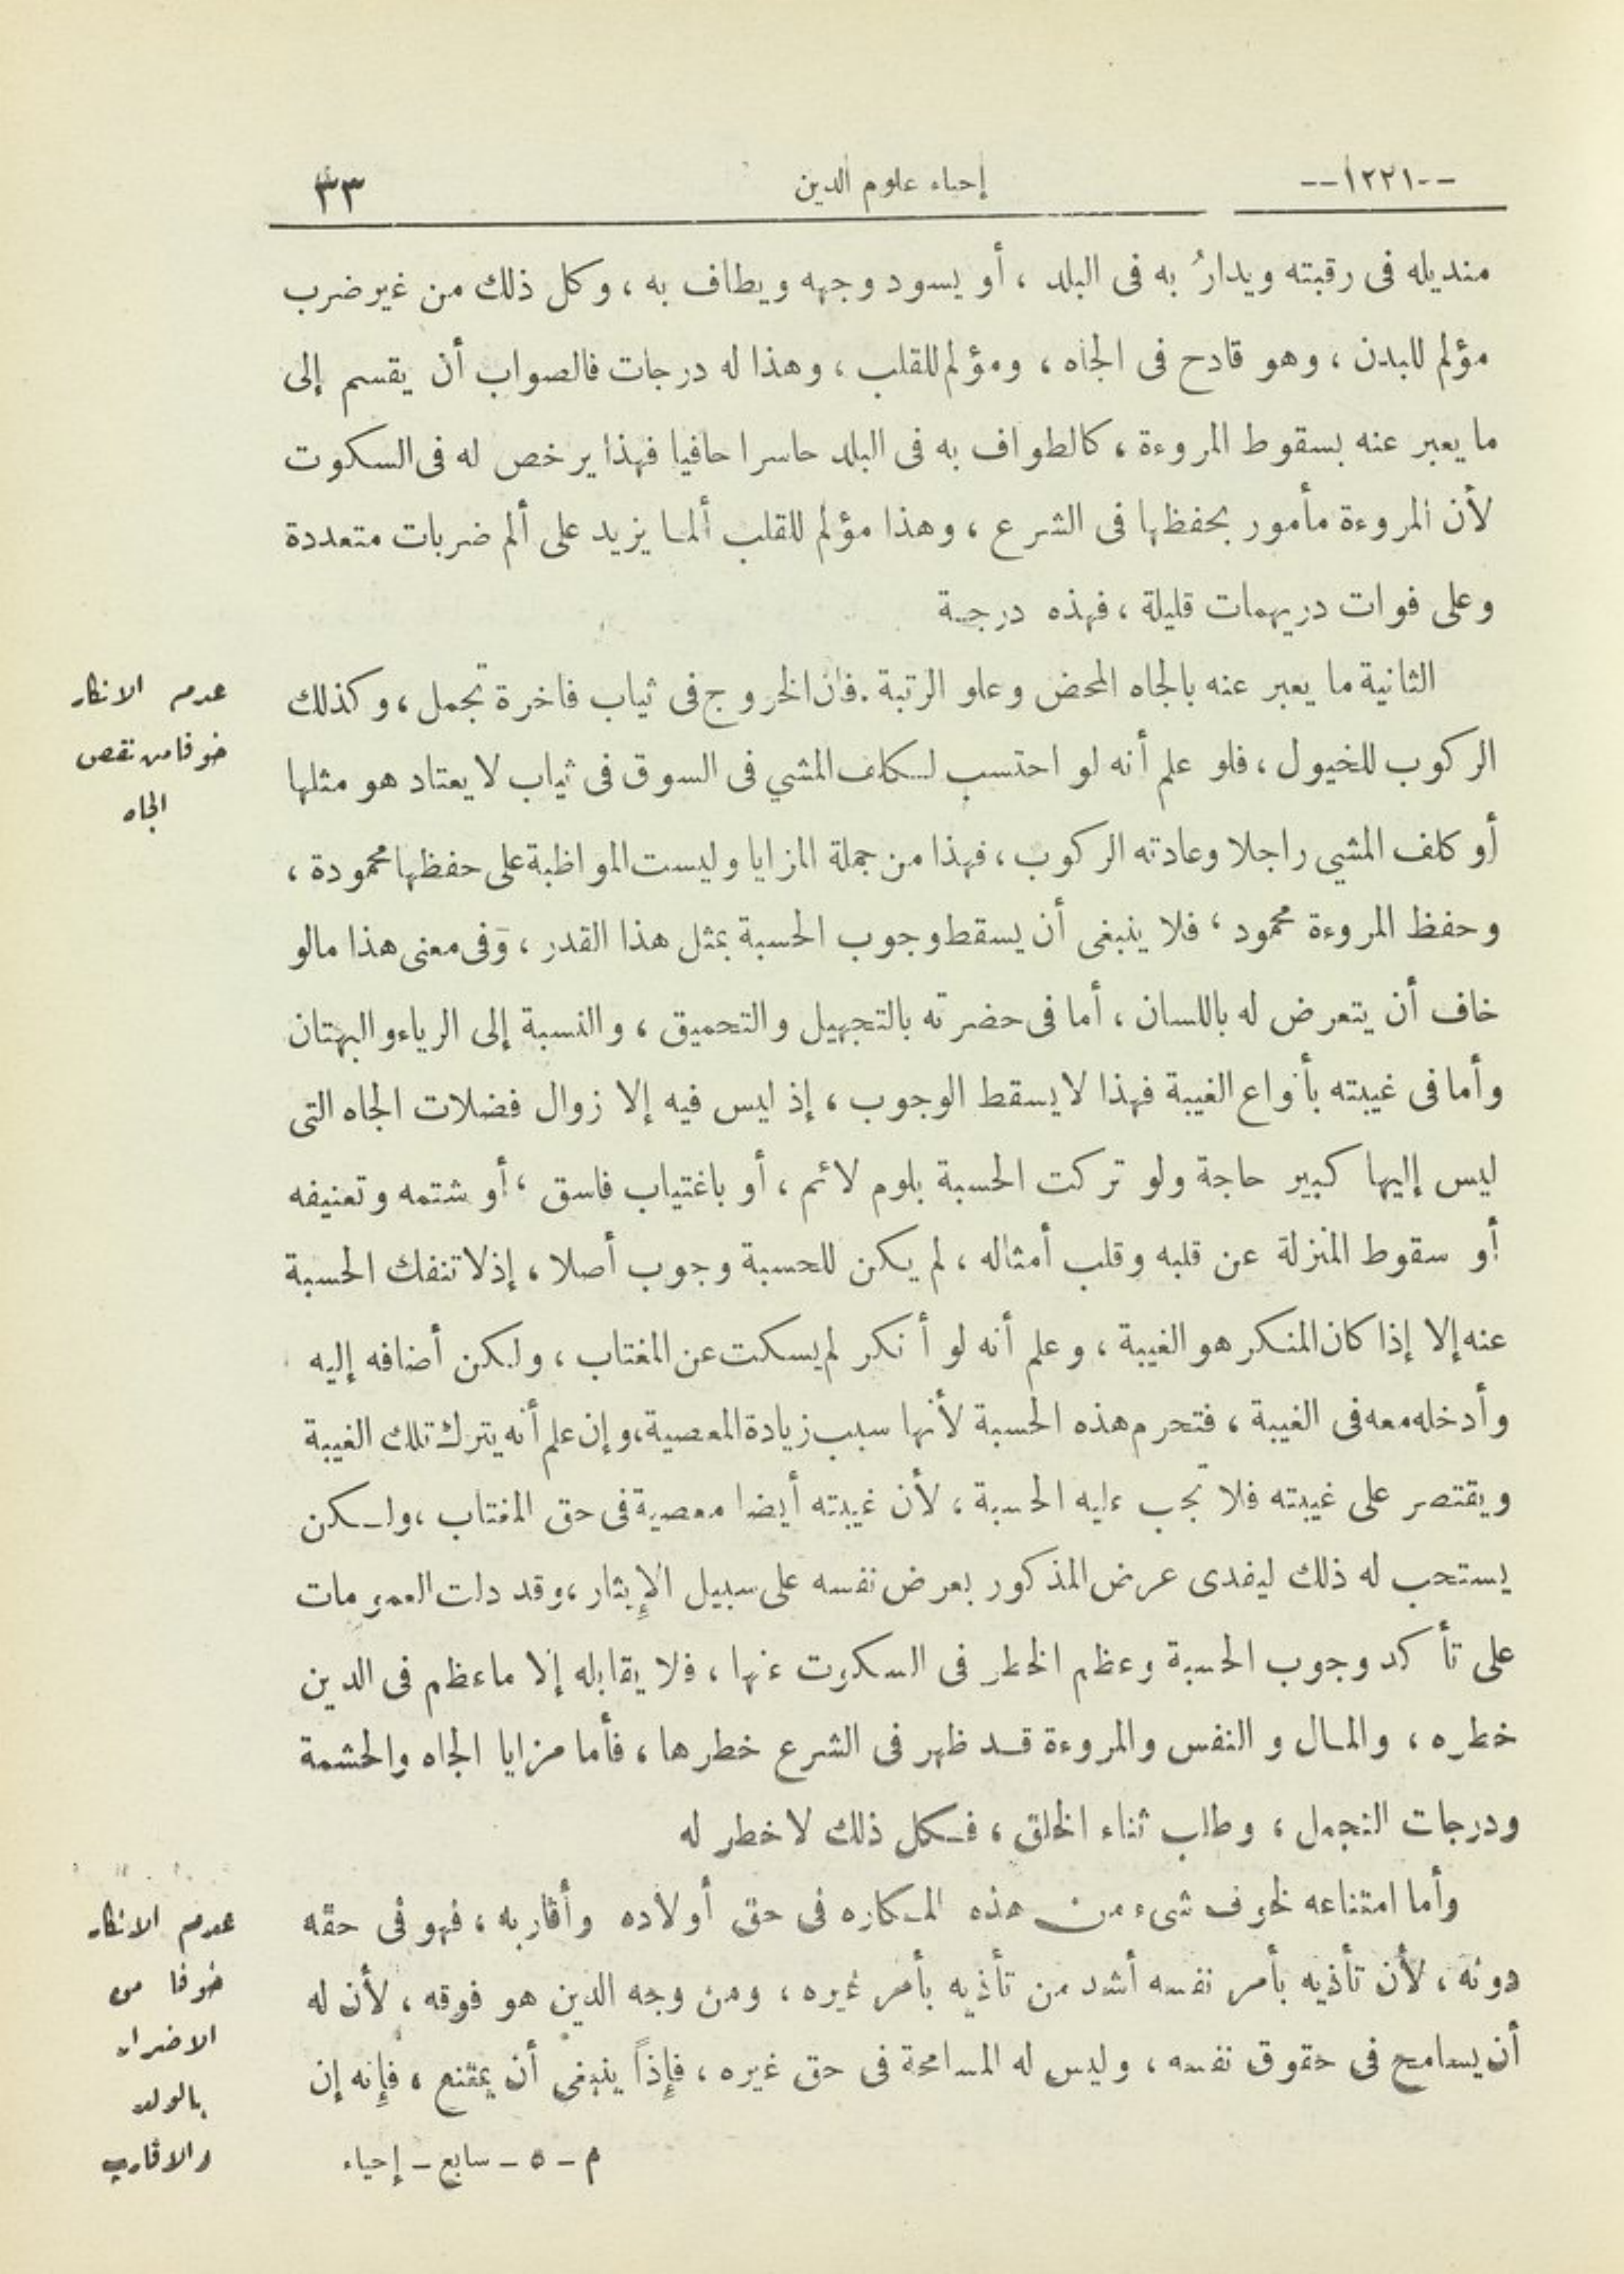 --١٢٢١--
إحياء علوم الدين
٣٣
منديله فى رقبته ويدارُ به فى البلد ، أو يسود وجهه ويطاف به ، وكل ذلك من غير ضرب
مؤلم للبدن ، وهو قادح فى الجاه ، ومؤلم للقلب ، وهذا له درجات فالصواب أن يقسم إلى
ما يعبر عنه بسقوط المروءة ، كالطواف به فى البلد حاسرا حافيا فهذا يرخص له فى السكوت
لأن المروءة مأمور بحفظها فى الشرع ، وهذا مؤلم للقلب ألما يزيد على ألم ضربات متعددة
وعلى فوات دريهمات قليلة ، فهذه درجة
الثانية ما يعبر عنه بالجاه المحض وعلو الرتبة . فان الخروج فى ثياب فاخرة تجمل ، وكذلك
الركوب للخيول ، فلو علم أنه لو احتسب لكلف المشي فى السوق فى ثياب لا يعتاد هو مثلها
أو كلف المشي راجلا وعادته الركوب ، فهذا من جملة المزايا وليست المواظبة على حفظها محمودة ،
وحفظ المروءة محمود ، فلا ينبغى أن يسقط وجوب الحسبة بمثل هذا القدر ، وفى معنى هذا مالو
خاف أن يتعرض له باللسان ، أما فى حضرته بالتجهيل والتحميق ، والنسبة إلى الرياء والبهتان
وأما فى غيبته بأنواع الغيبة فهذا لا يسقط الوجوب ، إذ ليس فيه إلا زوال فضلات الجاه التى
ليس إليها كبير حاجة ولو تركت الحسبة بلوم لائم ، أو باغتياب فاسق ، أو شتمه وتعنيفه
أو سقوط المنزلة عن قلبه وقلب أمثاله ، لم يكن للحسبة وجوب أصلا ، إذ لا تنفك الحسبة
عنه إلا إذا كان المنكر هو الغيبة ، وعلم أنه لو أنكر لم يسكت عن المغتاب ، ولكن أضافه إليه
وأدخله معه فى الغيبة ، فتحرم هذه الحسبة لأنها سبب زيادة المعصية ، وإن علم أنه يترك تلك الغيبة
ويقتصر على غيبته فلا تجب عليه الحسبة ، لأن غيبته أيضا معصية فى حق المغتاب ، ولكن
يستحب له ذلك ليفدى عرض المذكور بعرض نفسه على سبيل الإيثار ، وقد دلت العمومات
على تأكد وجوب الحسبة وعظم الخطر فى السكوت عنها ، فلا يقابله إلا ماعظم فى الدين
خطره ، والمال والنفس والمروءة قد ظهر فى الشرع خطرها ، فأما مزايا الجاه والحشمة
ودرجات التجمل ، وطلب ثناء الخلق ، فكل ذلك لا خطر له
وأما امتناعه لخوف شىء من هذه المكاره فى حق أولاده وأقاربه ، فهو فى حقه
دونه ، لأن تأذيه بأمر نفسه أشد من تأذيه بأمر غيره ، ومن وجه الدين هو فوقه ، لأن له
أن يسامح فى حقوق نفسه ، وليس له المسامحة فى حق غيره ، فإذاً ينبغى أن يمتنع ، فإنه إن
م - ٥ - سابع - إحياء
عدم الانكار
خوفا من نقص
الجاه
عدم الانكار
خوفا من
الاضرار
بالولد
والاقارب